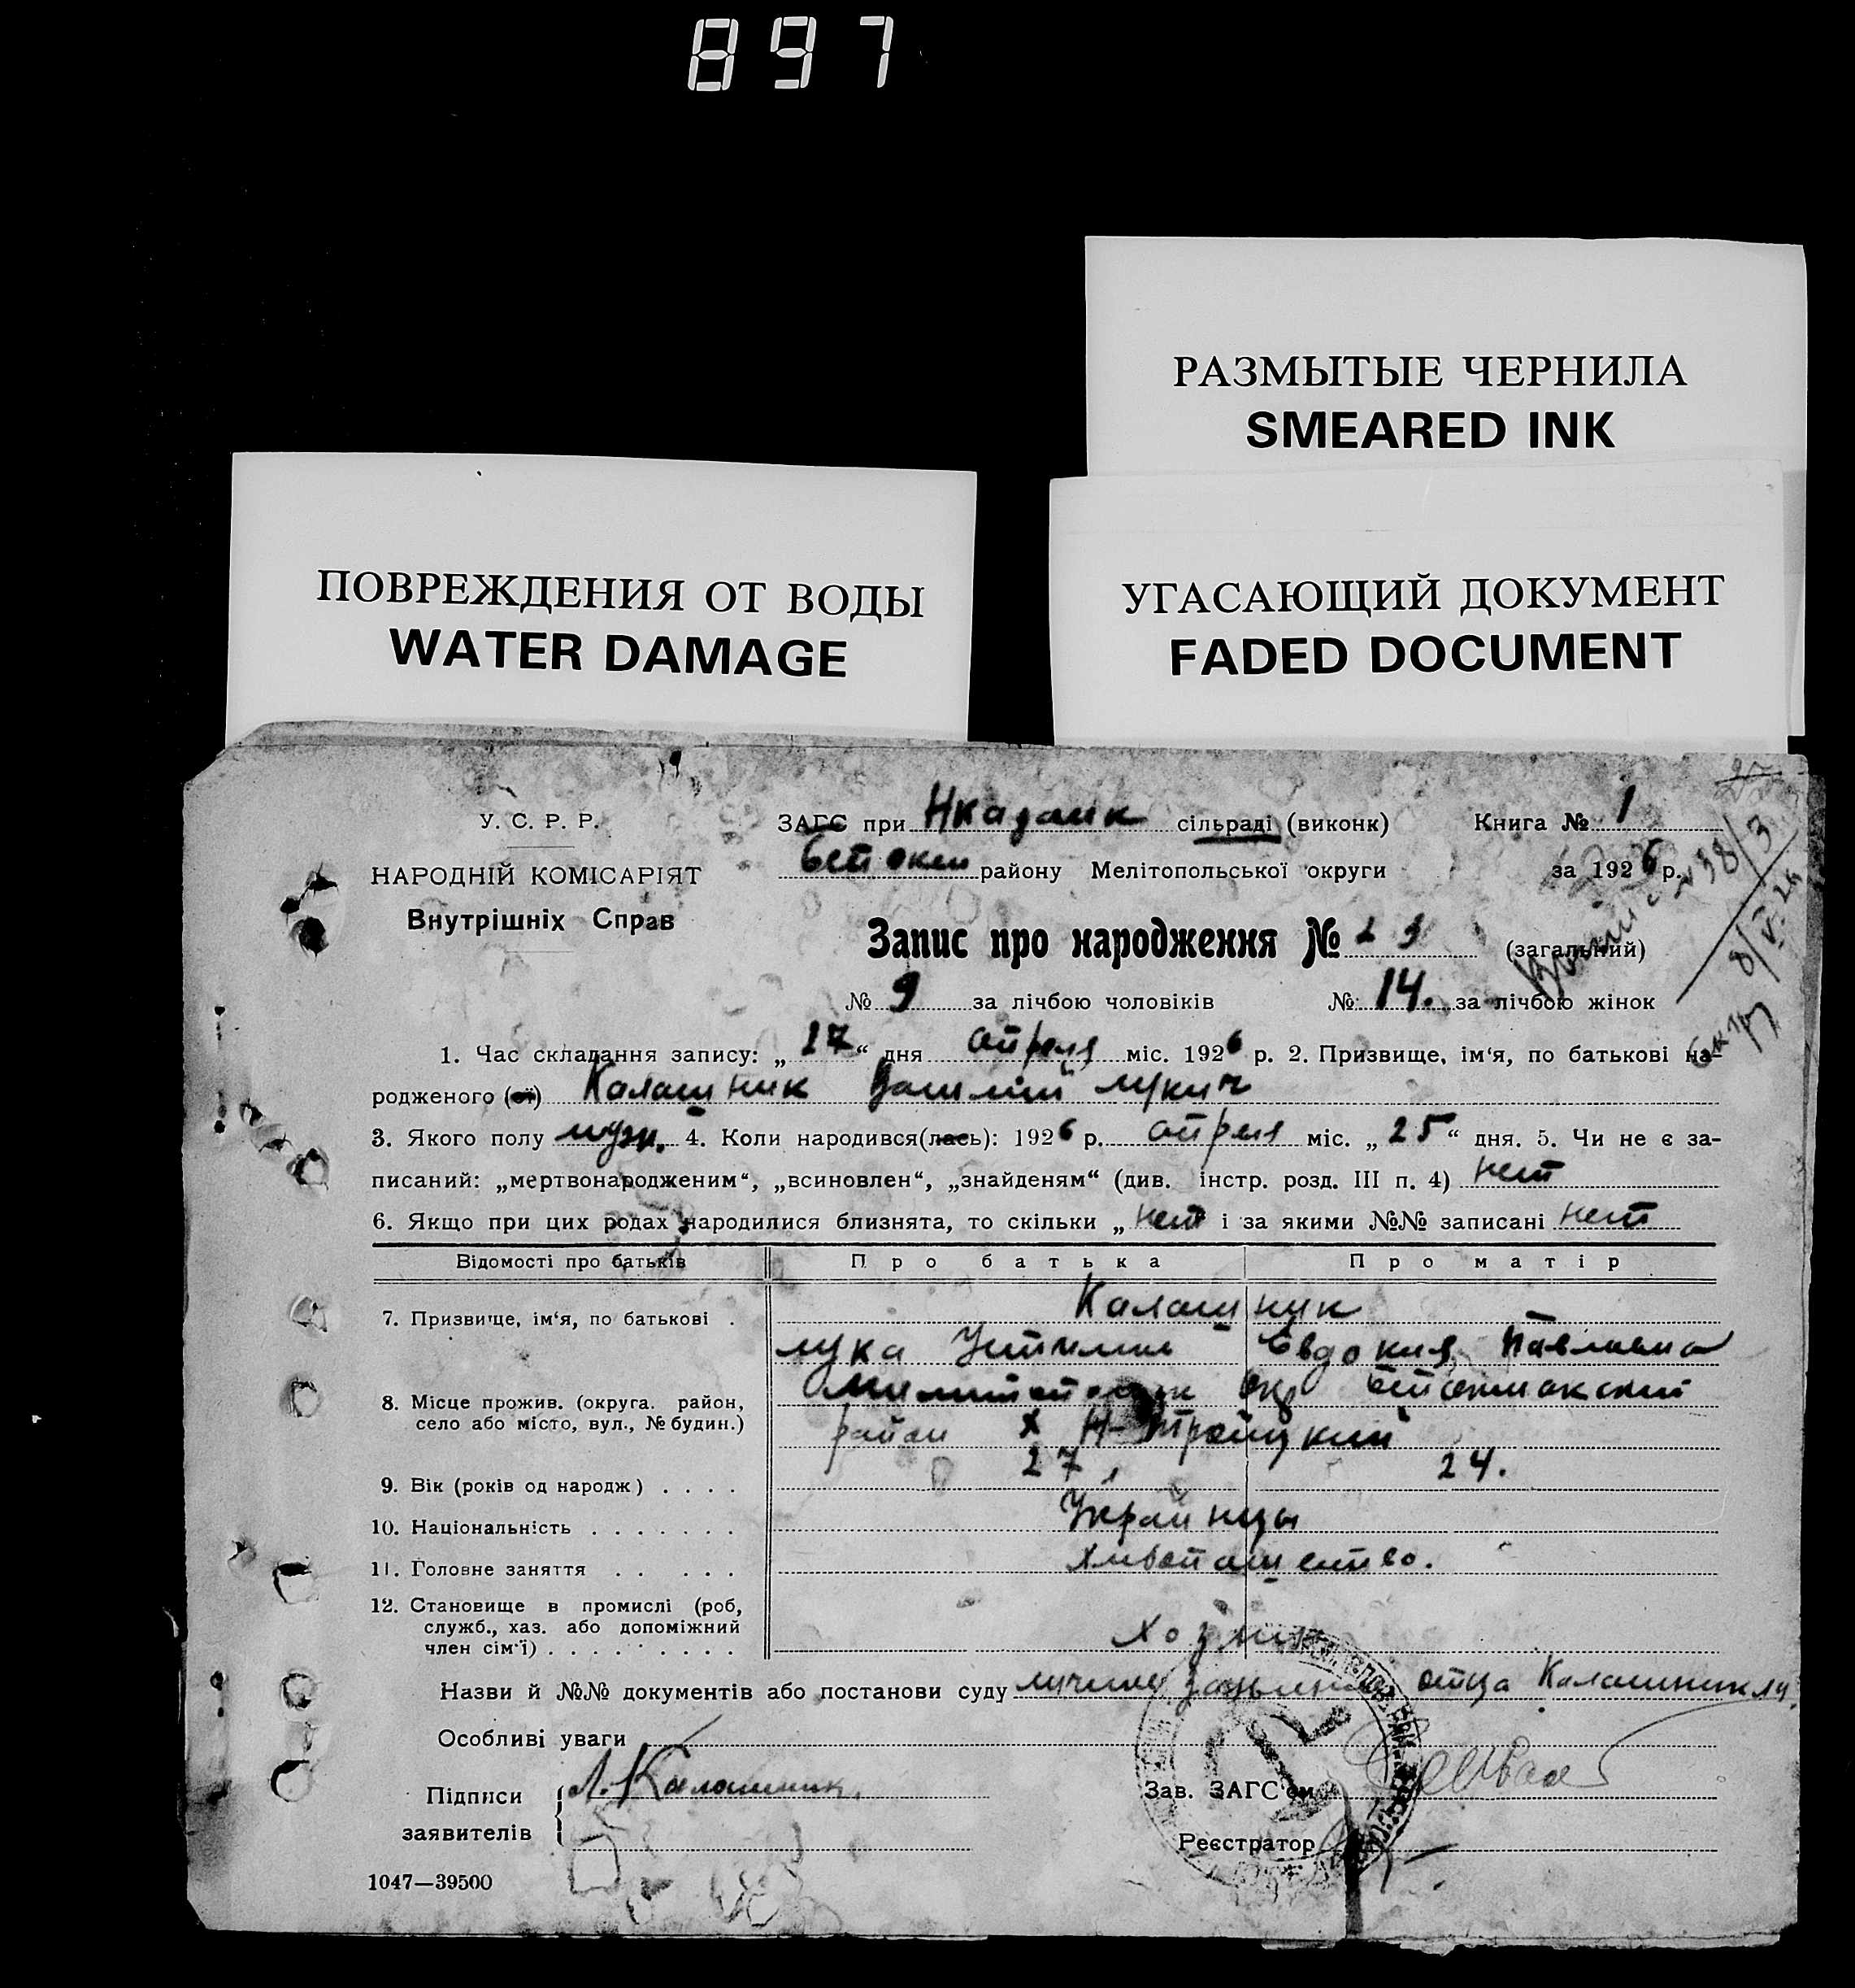 897
РАЗМЫТЫЕ ЧЕРНИЛА
SMEARED INK
ПОВРЕЖДЕНИЯ ОТ ВОДЫ
WATER DAMAGE
УГАСАЮЩИЙ ДОКУМЕНТ
FADED DOCUMENT
У. С. Р. Р.
ЗАГС при сільраді (виконк) Книга № 1
НАРОДНІЙ КОМІСАРІЯТ
району Мелітопольської округи за 1926 р.
Внутрішніх Справ
38/3
8/V. 26
Запис про народження № 23 (загальний)
№ 9 за лічбою чоловіків № 14. за лічбою жінок
1. Час складання запису: „ 27 “ дня апреля міс. 1926 р. 2. Призвище, ім‘я, по батькові на-
родженого (ої) Калашник Василий Лукич
3. Якого полу муж. 4. Коли народився(лась): 1926 р. апреля міс. „ 25 “ дня. 5. Чи не є за-
писаний: „мертвонародженим“, „всиновлен“, „знайденям“ (див. інстр. розд. III п. 4) нет
6. Якщо при цих родах народилися близнята, то скільки „ нет і за якими №№ записані нет
Відомості про батьків Про батька Про матір
7. Призвище, ім‘я, по батькові . Калашник
Лука Устимов Евдокия Павловна
8. Місце прожив. (округа. район,
село або місто, вул., № будин.)
район х Н-Троицкий
9. Вік (років од народж) . . . . 27, 24.
10. Національність . . . . . . . Украинцы
11. Головне заняття . . . . . Хлебопашество.
12. Становище в промислі (роб,
служб., хаз. або допоміжний
член сім‘ї) . . . . . . . . Хозяин
Назви й №№ документів або постанови суду отца Калашник Лу.
Особливі уваги
Підписи Л. Калашник. Зав. ЗАГС‘ом
заявителів Реєстратор
1047—39500